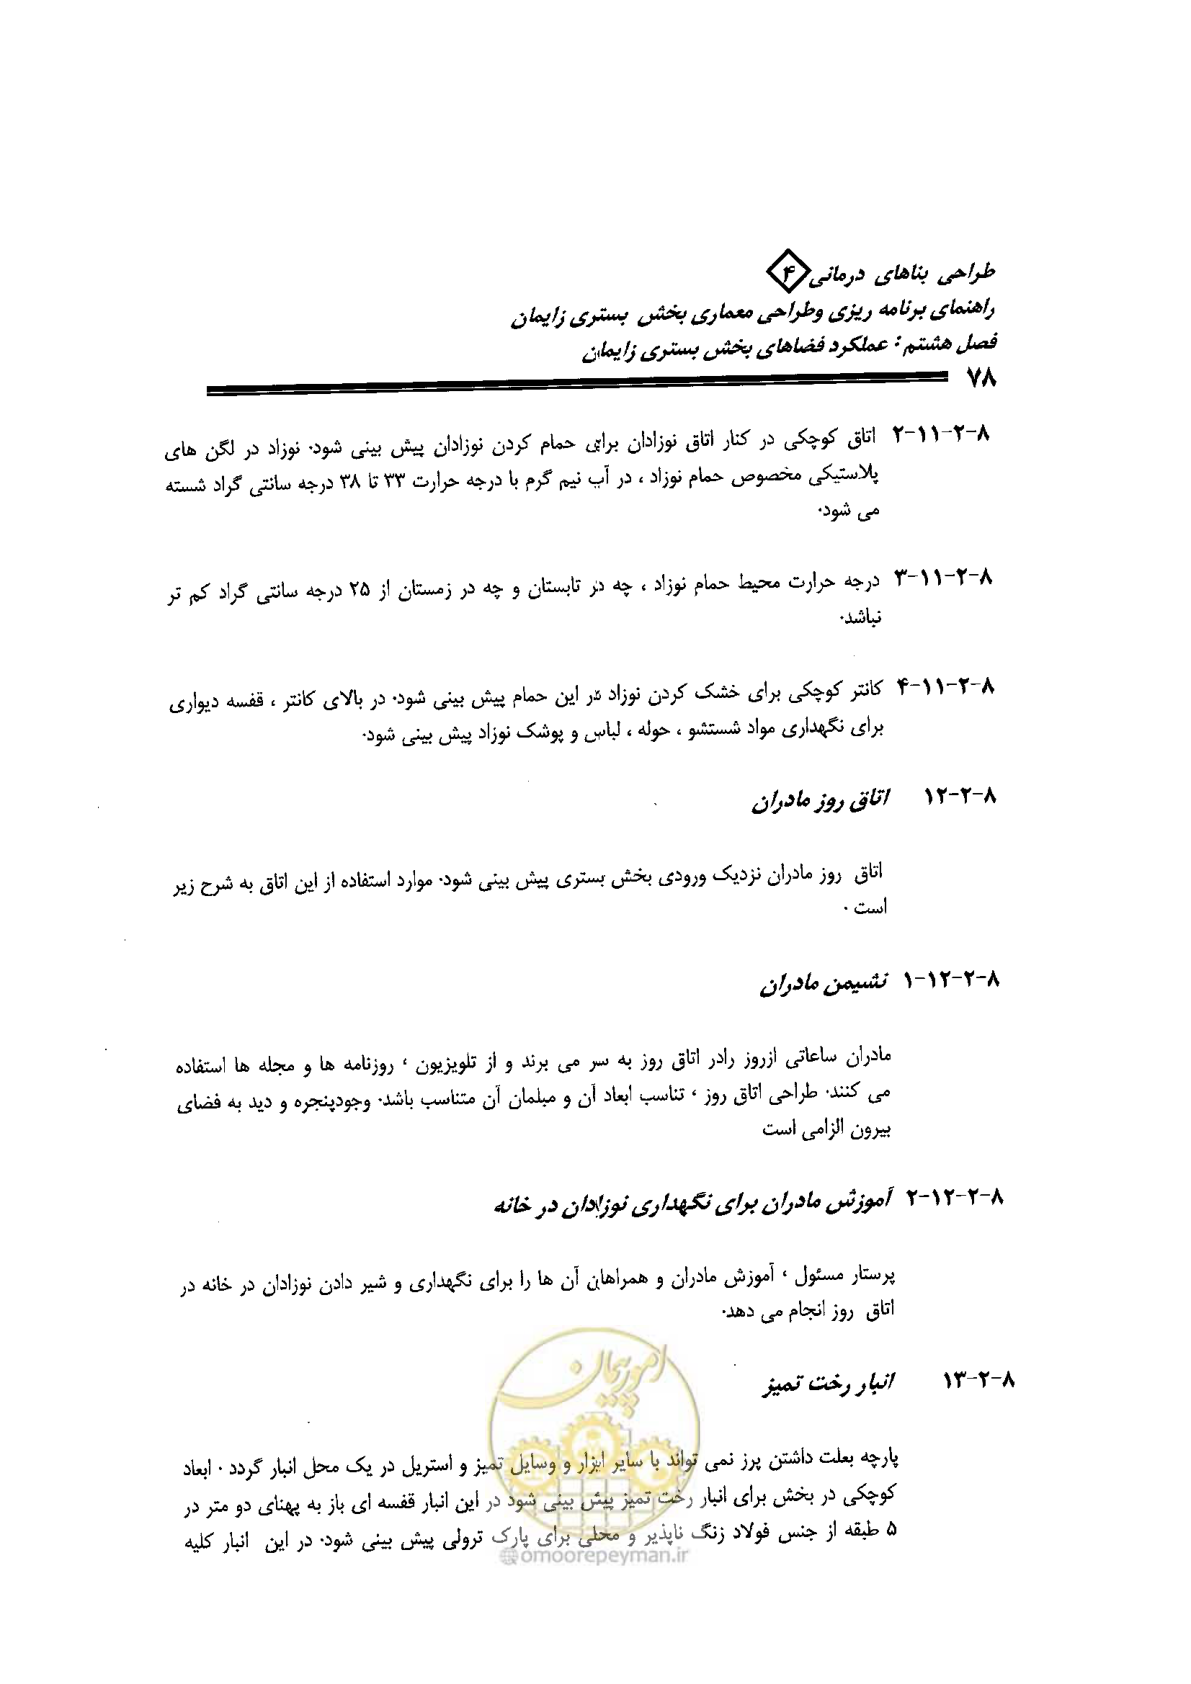 طراحی بناهای درمانی ۴
راهنمای برنامه ریزی وطراحی معماری بخش بستری زایمان
فصل هشتم : عملکرد فضاهای بخش بستری زایمان
۷۸
۸-۲-۱۱-۲ اتاق کوچکی در کنار اتاق نوزادان برای حمام کردن نوزادان پیش بینی شود. نوزاد در لگن های
پلاستیکی مخصوص حمام نوزاد ، در آب نیم گرم با درجه حرارت ۳۳ تا ۳۸ درجه سانتی گراد شسته
می شود.
۸-۲-۱۱-۳ درجه حرارت محیط حمام نوزاد ، چه در تابستان و چه در زمستان از ۲۵ درجه سانتی گراد کم تر
نباشد.
۸-۲-۱۱-۴ کانتر کوچکی برای خشک کردن نوزاد در این حمام پیش بینی شود. در بالای کانتر ، قفسه دیواری
برای نگهداری مواد شستشو ، حوله ، لباس و پوشک نوزاد پیش بینی شود.
۸-۲-۱۲ اتاق روز مادران
اتاق روز مادران نزدیک ورودی بخش بستری پیش بینی شود. موارد استفاده از این اتاق به شرح زیر
است .
۸-۲-۱۲-۱ نشیمن مادران
مادران ساعاتی ازروز رادر اتاق روز به سر می برند و از تلویزیون ، روزنامه ها و مجله ها استفاده
می کنند. طراحی اتاق روز ، تناسب ابعاد آن و مبلمان آن متناسب باشد. وجودپنجره و دید به فضای
بیرون الزامی است
۸-۲-۱۲-۲ آموزش مادران برای نگهداری نوزادان در خانه
پرستار مسئول ، آموزش مادران و همراهان آن ها را برای نگهداری و شیر دادن نوزادان در خانه در
اتاق روز انجام می دهد.
۸-۲-۱۳ انبار رخت تمیز
پارچه بعلت داشتن پرز نمی تواند با سایر ابزار و وسایل تمیز و استریل در یک محل انبار گردد . ابعاد
کوچکی در بخش برای انبار رخت تمیز پیش بینی شود در این انبار قفسه ای باز به پهنای دو متر در
۵ طبقه از جنس فولاد زنگ ناپذیر و محلی برای پارک ترولی پیش بینی شود. در این انبار کلیه
امور پیمان
@omoorepeyman.ir